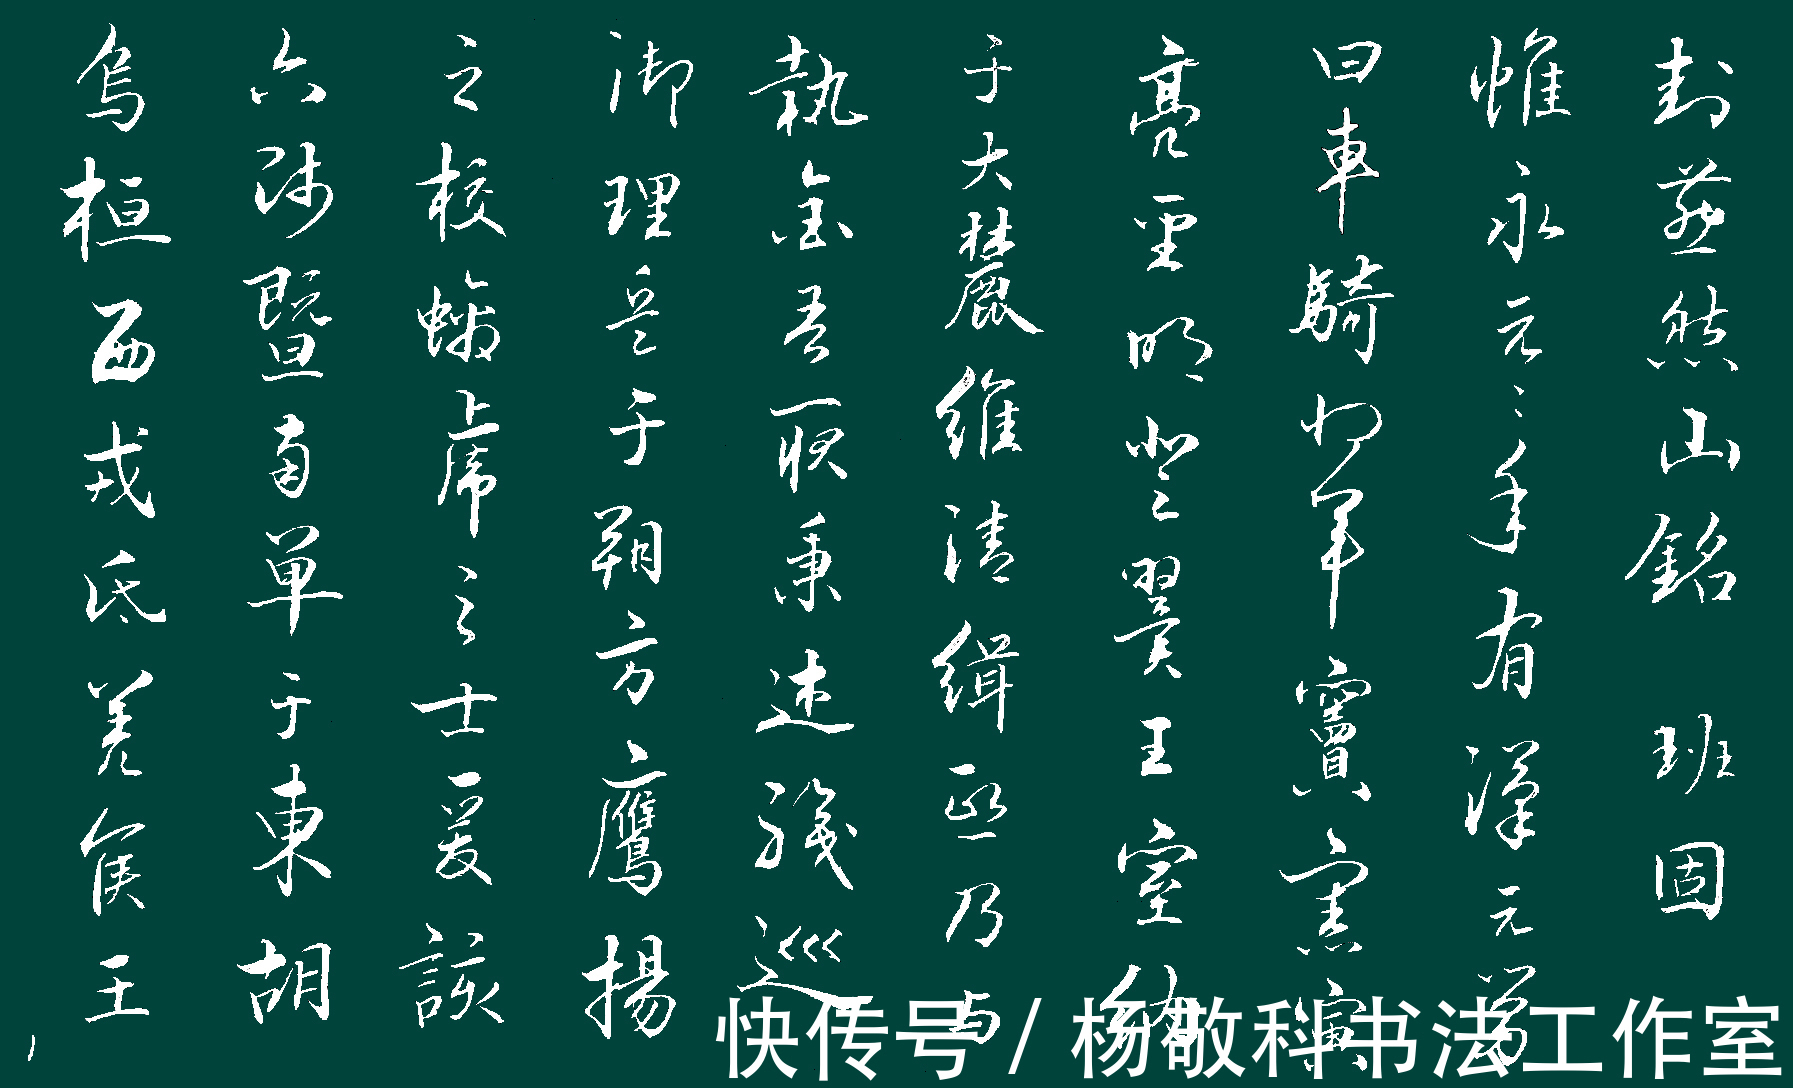 封燕然山銘 班固
惟永元〻年有漢元舅
曰車騎将军竇憲寅
亮聖明登翼王室納
于大麓維清緝熙乃与
執金吾耿秉述職巡
御理兵于朔方鷹揚
之校螭虎之士爰該
六師暨南单于東胡
烏桓西戎氐羌侯王
快传号 / 杨敬科书法工作室